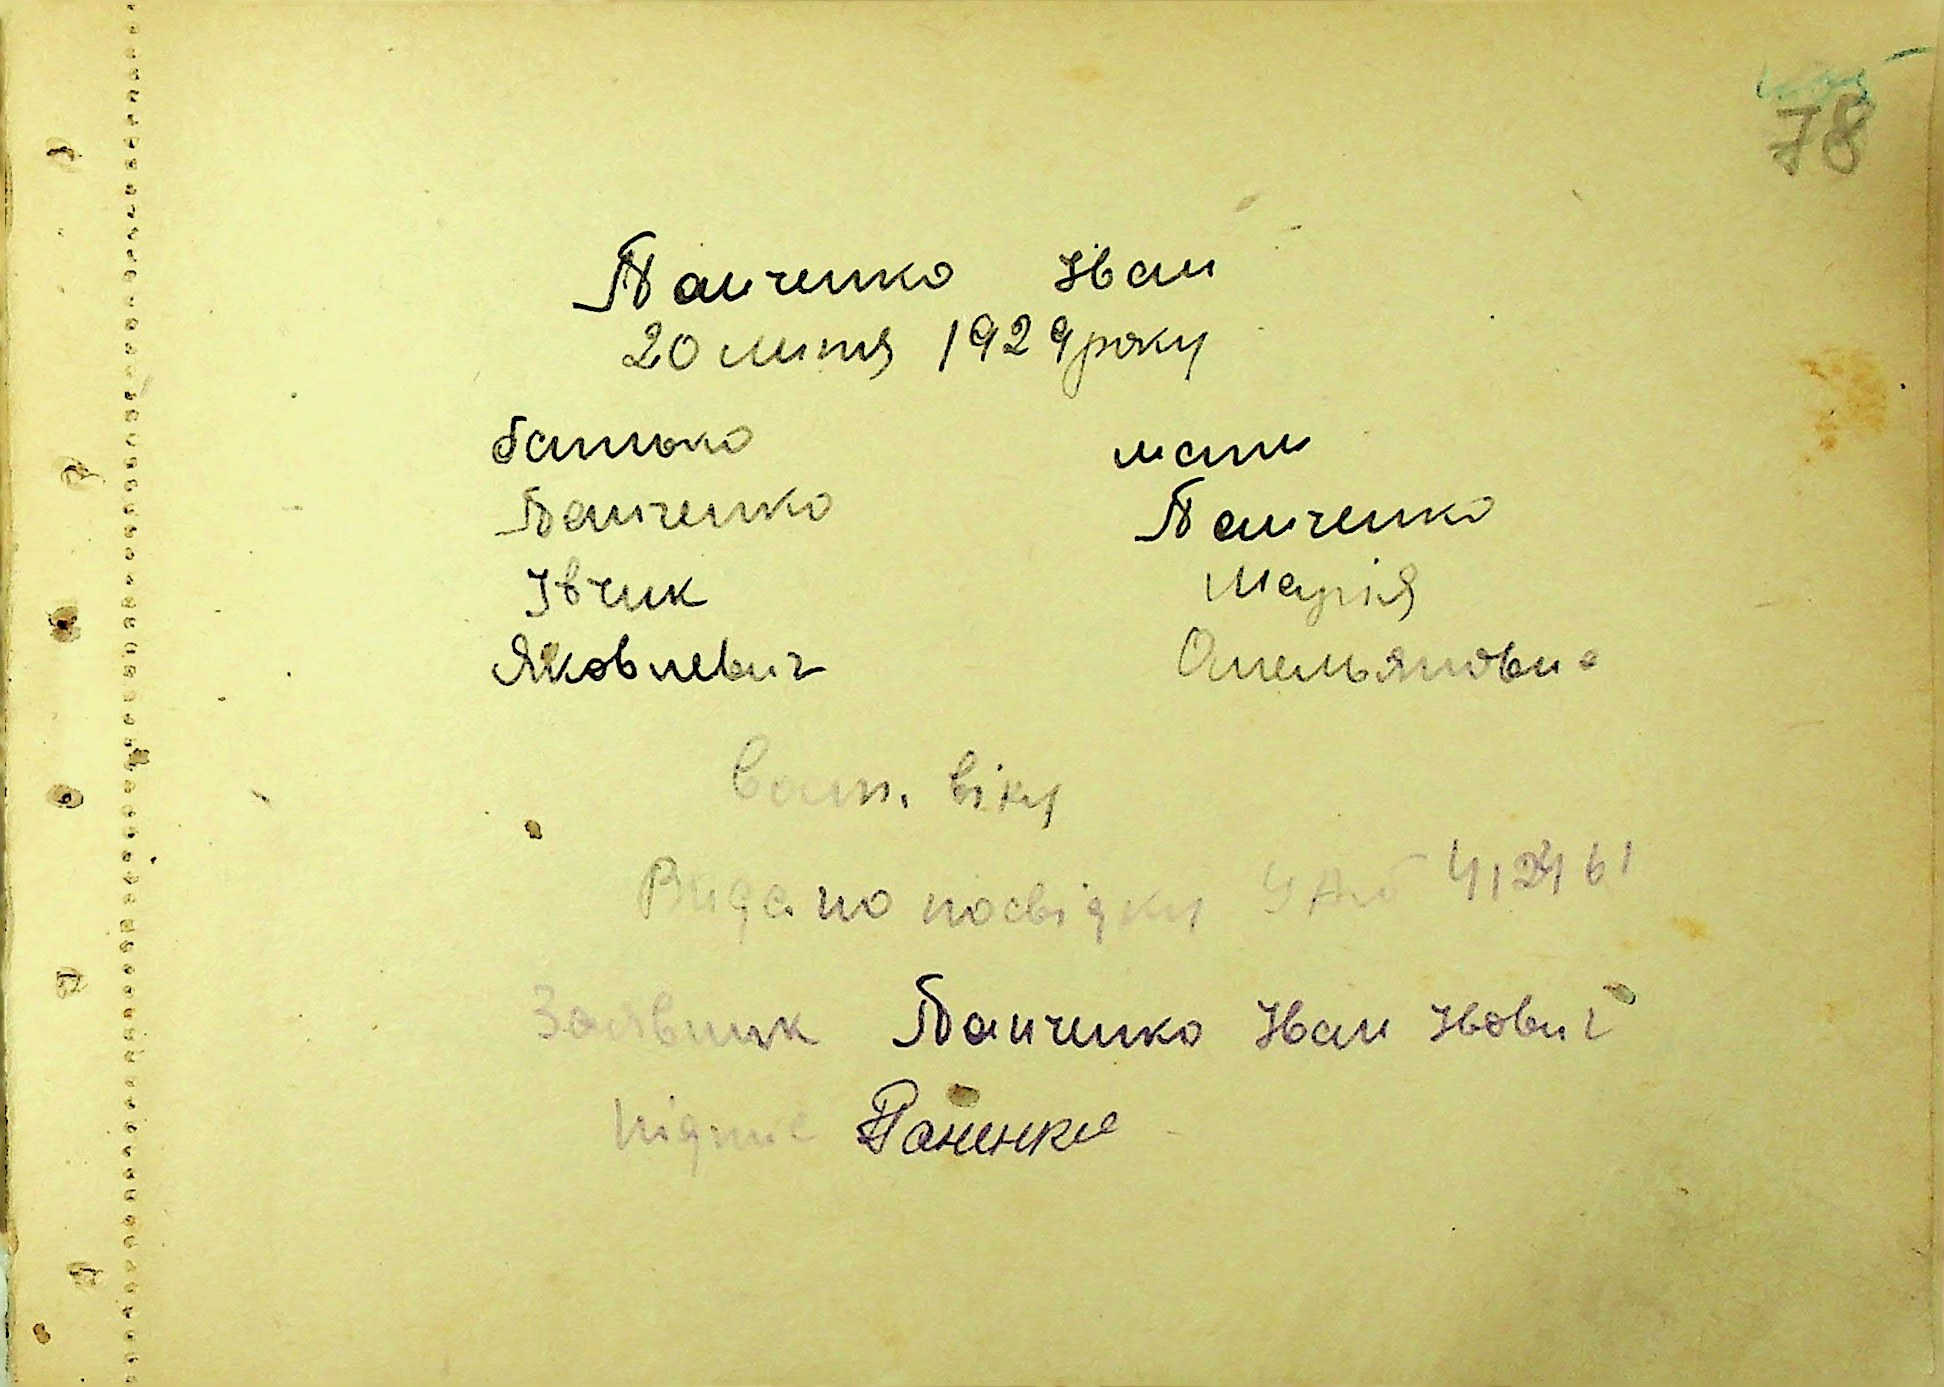 78
Панченко Іван
20 липня 1929 року
батько мати
Панченко Панченко
Івчик Марія
Яковлевич Омельянови
вост. віку
Видано посвідку УАБ 412461
Заявник Панченко Іван Івович
підпис Паненко